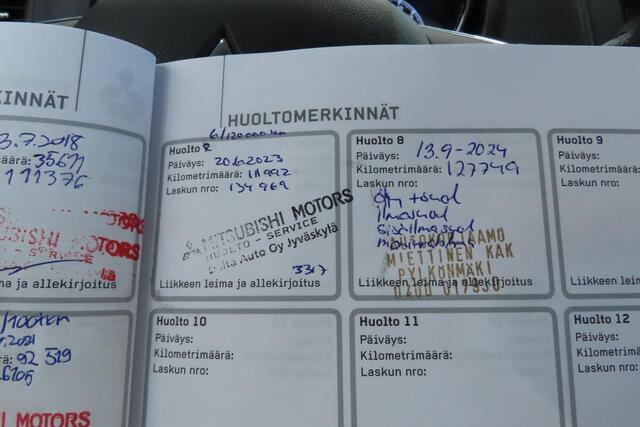 KINNÄT
3.7.2018
määrä: 35671
111376
MOTORS
ma ja allekirjoitus
/100tkm
92 519
MOTORS
HUOLTOMERKINNÄT
6/120000km
Huolto
Päiväys: 20.6.2023
Kilometrimäärä: 111992
Laskun nro: 134969
MITSUBISHI MOTORS
HUOLTO - SERVICE
Delta Auto Oy Jyväskylä
3317
Liikkeen leima ja allekirjoitus
Huolto 8
Päiväys: 13.9-2024
Kilometrimäärä: 127749
Laskun nro:
Öljy + suod
Ilmasuod
Sisäilmasuod
AUTOKORJAAMO
MIETTINEN KAK
PYLKÖNMÄKI
Liikkeen leima ja allekirjoitus
Huolto 9
Päiväys:
Kilometrimäärä:
Laskun nro:
Liikkeen
Huolto 10
Päiväys:
Kilometrimäärä:
Laskun nro:
Huolto 11
Päiväys:
Kilometrimäärä:
Laskun nro:
Huolto 12
Päiväys:
Kilometri
Laskun nro